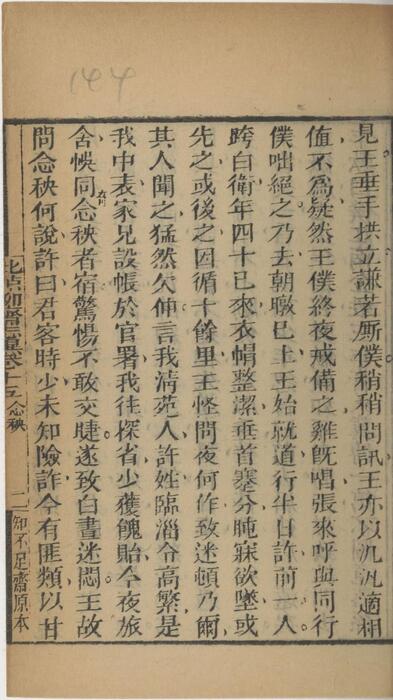 144
見王垂手拱立謙若厮僕稍稍問訊王亦以汎汎適相
值不爲疑然王僕終夜戒備之雞旣唱張來呼與同行
僕咄絕之乃去朝暾已上王始就道行半日許前一人
跨白衛年四十已來衣帽整潔垂首蹇分盹寐欲墜或
先之或後之因循十餘里王怪問夜何作致迷頓乃爾
其人聞之猛然欠伸言我淸苑人許姓臨淄令高檠是
我中表家兄設帳於官署我往探省少獲餽貽今夜旅
舍悞同念秧者宿驚惕不敢交睫遂致白晝迷悶王故
問念秧何說許曰君客時少未知險詐今有匪類以甘
卷十五 念秧
二 知不足齋原本